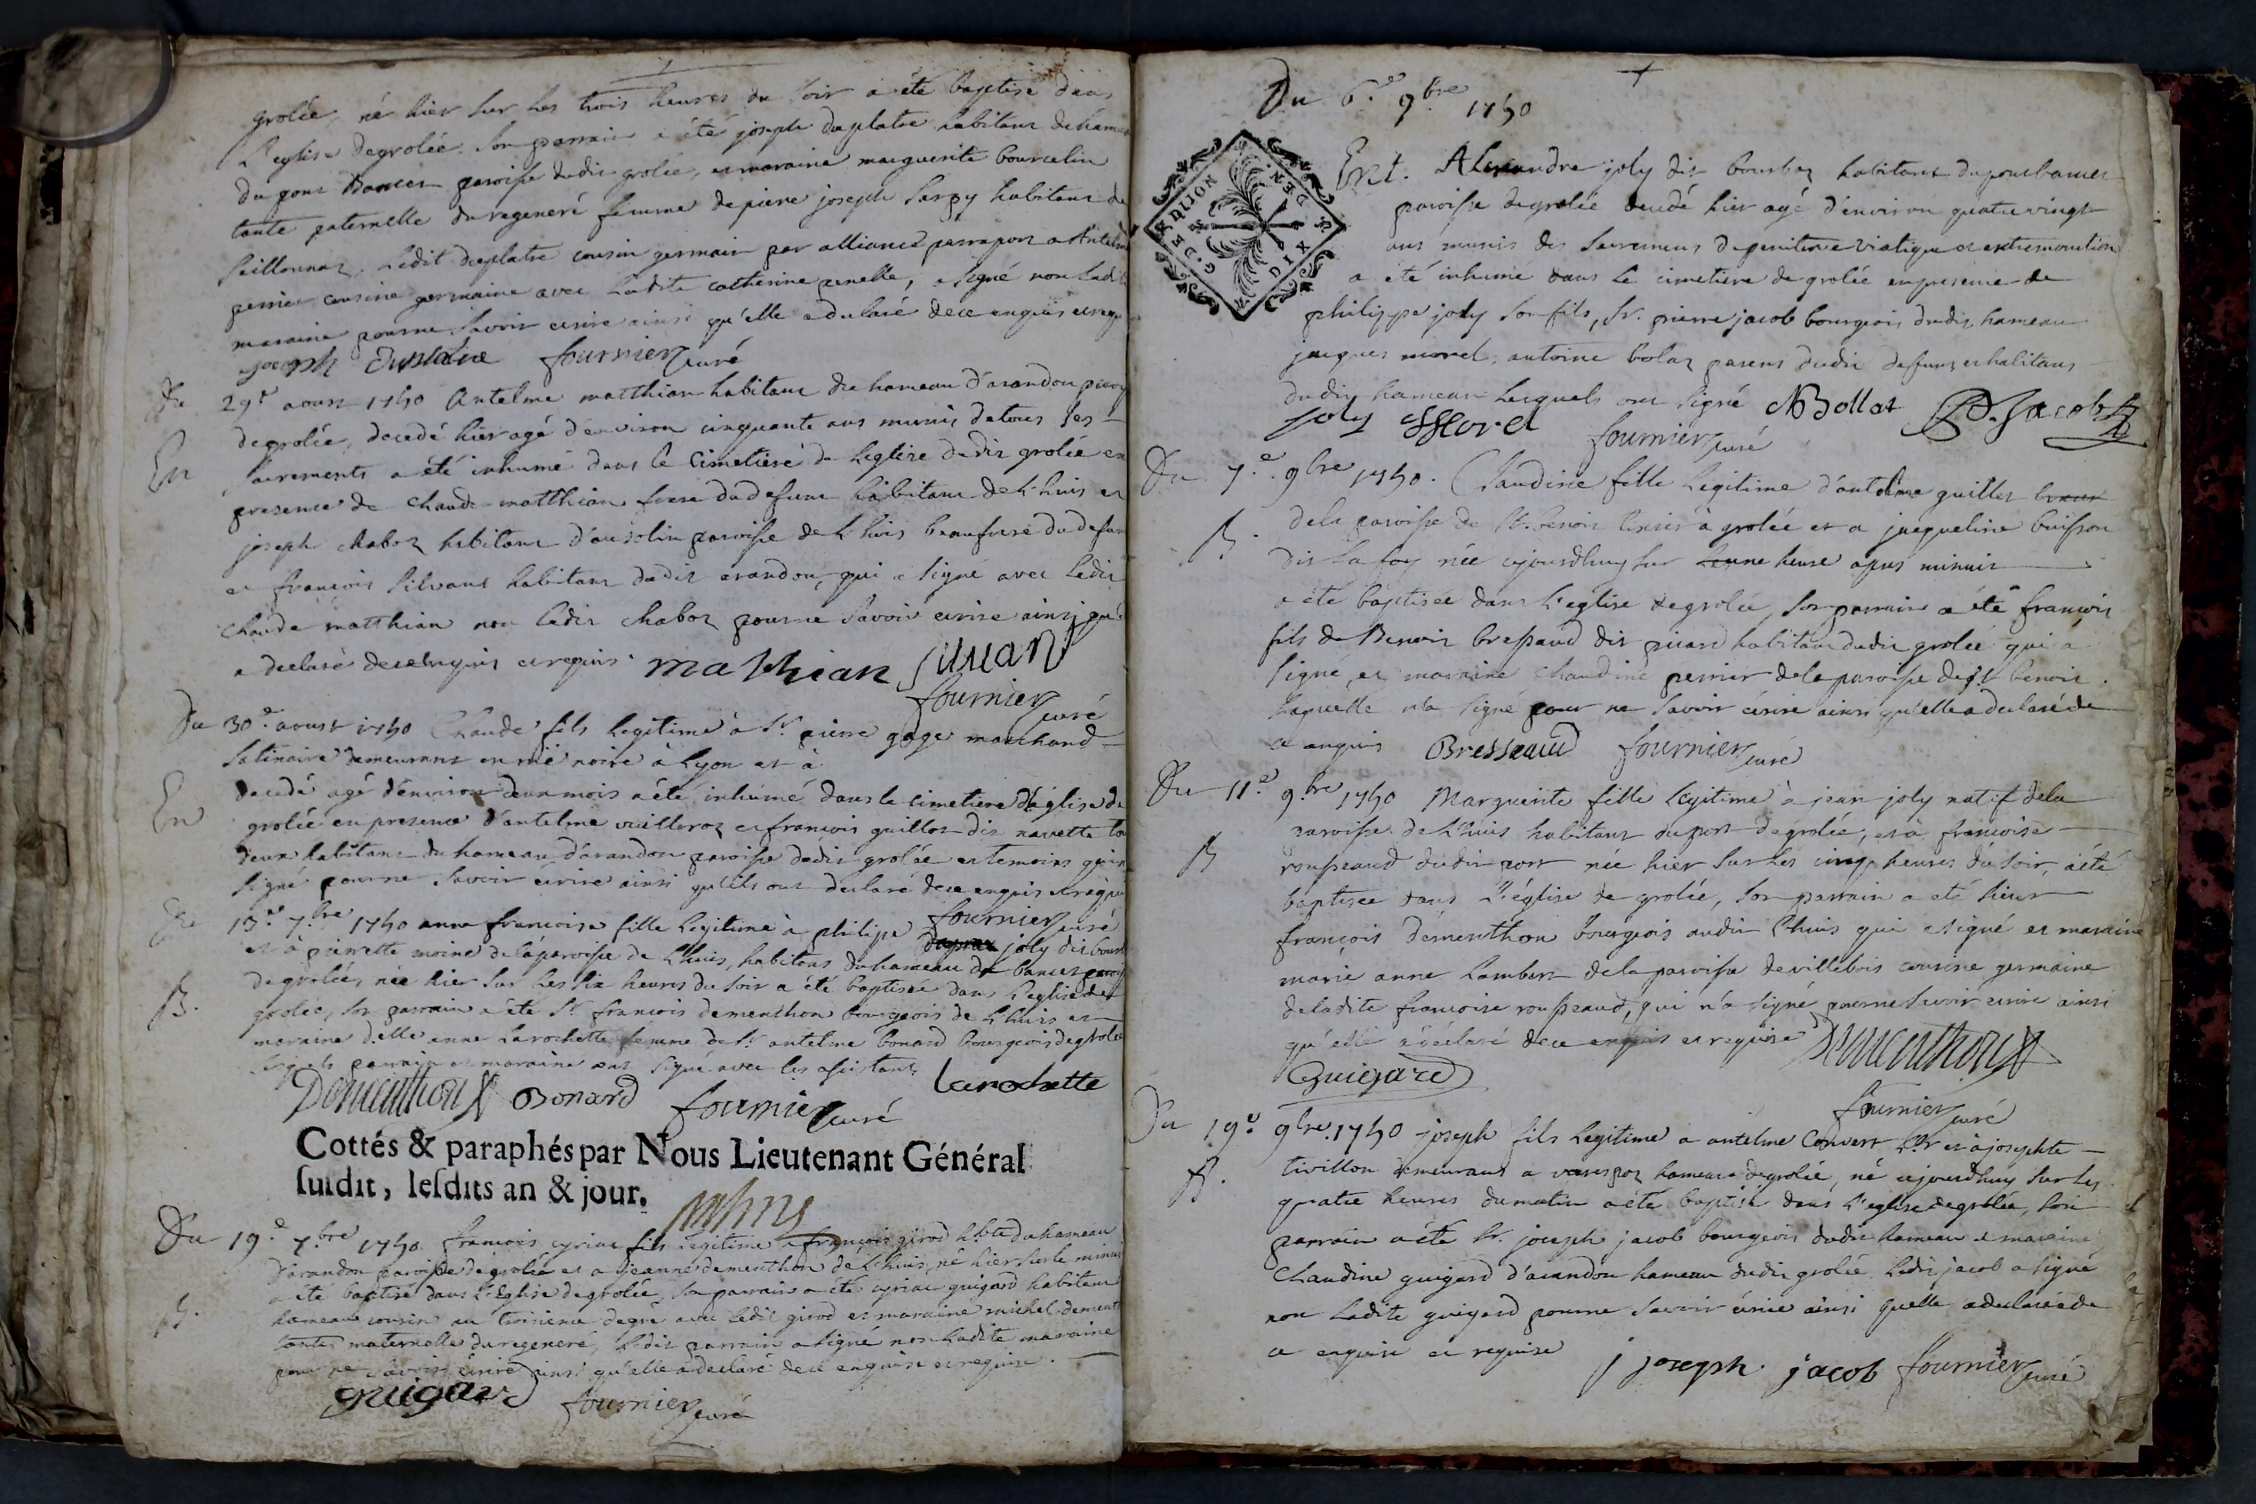 grolée, né hier sur les trois heures du soir a été baptisé dans
L'eglise de grolée. Son parrain a été joseph duplatre habitant du hameau
du pont Bancet paroisse dudit grolée, et maraine marguerite bourcelin
tante paternelle du regeneré femme de pierre joseph Sarpy habitant de
Seillonnaz. Ledit duplatre cousin germain par alliance parrapor a Antelme
perrier cousine germaine avec Ladite catherine , a signé non ladite
maraine pour ne savoir ecrire ainsi qu'elle a declaré de ce enquis et requise
joseph Duplatre fournier curé
Du 29e aoust 1750 Antelme matthian habitant du hameau d'arandon paroisse
de grolée, decedé hier agé d'environ cinquante ans munis de tous ses
En sacrements a été inhumé dans le Cimetiere de L'eglise dudit grolée en
presence de Claude matthian frere du defunt habitant de L'huis et
joseph chaboz habitant d'ansolin paroisse de L'huis beaufrere du defunt
et françois Silvant habitant dudit arandon, qui a signé avec Ledit
Claude matthian non ledit chaboz pour ne savoir ecrire ainsi qu'il
a declaré de ce enquis et requis. mathian Sivian
fournier curé
Du 30e aoust 1750 Claude fils legitime à Sr. pierre gage marchand
Satinaire demeurant en rüe noire à Lyon et à
decedé agé d'environ deux mois a été inhumé dans le cimetiere d'église de
En grolée en presence d'antelme vuilleroz et françois guillot dit navette tous
deux habitans du hameau d'arandon paroisse dudit grolée et temoins qui n'ont
signé pour ne savoir ecrire ainsi qu'ils ont declaré de ce enquis et requis
fournier curé
Du 13e 7bre 1750 anne françoise fille Legitime à philipe joly dit bourbaz
et à pierrette moine de la paroisse de L'huis, habitans du hameau de bancet paroisse
de grolée, née hier sur les six heures du soir a été baptisée dans L'eglise de
B. grolée, son parrain a été Sr. françois dementhon bourgeois de L'huis et
maraine delle anne Larochette femme de Sr. antelme bonard bourgeois de grolée
Lesquels parrain et maraine ont signé avec les assistants
Dementhon Bonard fournier curé Larochette
Cottés & paraphés par Nous Lieutenant Général
susdit, lesdits an & jour.
Du 19e 7bre 1750. françois cyriac fils Legitime a françois girod h.bt du hameau
d'arandon paroisse de grolée et a jeanne dementhon de L'huis, né hier sur le minuit
B. a été baptisé dans L'Eglise de grolée, son parrain a été cyriac guigard habitant
hameau cousin au troisieme degré avec Ledit girod et maraine michel dementhon
tante maternelle du regeneré, Ledit parrain a signé non Ladite maraine
pour ne savoir écrire ainsi qu'elle a declaré de ce enquise et requise.
guigard fournier curé
Du 6.e 9bre 1750
G. DE R DIJON DIX DEN.
Ent. Alexandre joly dit bourbaz habitant du pont bancet
paroisse de grolée decedé hier agé d'environ quatre vingt
ans munis des Sacremens de penitence viatique et extremonction
a été inhumé dans Le cimetiere de grolée en presence de
philippe joly son fils, Sr. pierre jacob bourgeois dudit hameau
jacques morel, antoine bolaz parens dudit defunt et habitans
dudit hameau Lesquels ont signé Bollat P. Jacob
joly Morel fournier curé
Du 7.e 9bre 1750. Claudine fille Legitime d'antelme guillet
B. de la paroisse de St. benoit à grolée et a jacqueline buisson
dit La foy née ajourdhuy sur une heure apres minuit
a été baptisée dans L'eglise de grolée, son parrain a été françois
fils de Benoit bressaud dit picard habitant dudit grolée qui a
signé, et maraine Claudine perrier de la paroisse de St benoit
Laquelle n'a signé pour ne savoir écrire ainsi qu'elle a declaré de
ce enquis Bressaud fournier curé
Du 11.e 9bre 1750 Marguerite fille Legitime à jean joly natif de la
paroisse de L'huis habitant du port de grolée, et à françoise
B roupeaud dudit port née hier sur les cinq heures du soir, a été
baptisée dans L'église de grolée, son parrain a été sieur
françois dementhon bourgeois audit L'huis qui a signé et maraine
marie anne Lambert de la paroisse de villebois cousine germaine
de ladite françoise roupeaud, qui n'a signé pour ne savoir ecrire ainsi
qu'elle a declaré de ce enquis et requise Dementhon
Guigard
fournier curé
Du 19.e 9bre. 1750 joseph fils Legitime a antelme Convert et à josephte
B. tivillon demeurant a hameau de grolée, né ajourdhuy sur les
quatre heures du matin a été baptisé dans L'eglise de grolée, son
parrain a été Sr. joseph jacob bourgeois dudit hameau et maraine
Claudine guigard d'arandon hameau dudit grolée. Ledit jacob a signé
non Ladite guigard pour ne savoir écrire ainsi quelle a declaré de
ce enquise et requise j joseph jacob fournier curé